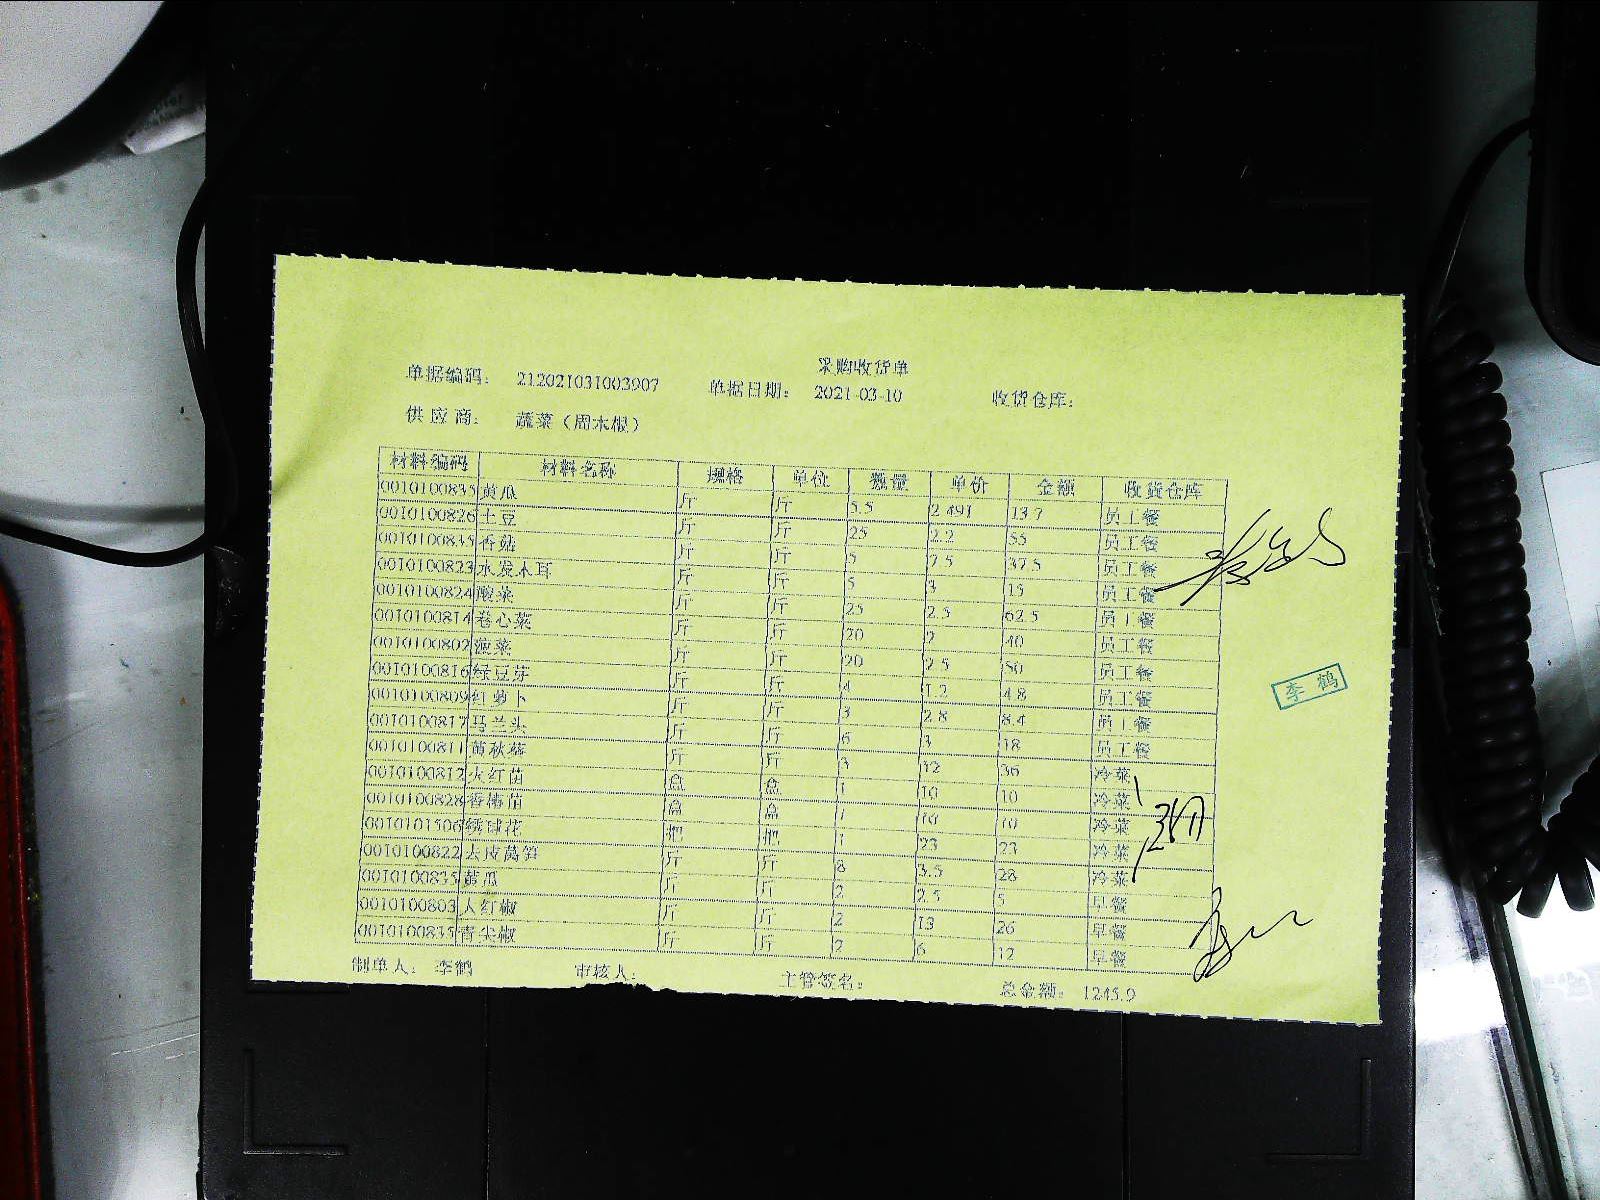 采购收货单
单据编码： 212021031003907 单据日期： 2021-03-10 收货仓库：
供应商： 蔬菜（周木根）
材料编码 材料名称 规格 单位 数量 单价 金额 收货仓库
0010100835 黄瓜 斤 斤 5.5 2.491 13.7 员工餐
0010100826 土豆 斤 斤 25 2.2 55 员工餐
0010100835 香菇 斤 斤 5 7.5 37.5 员工餐
0010100823 水发木耳 斤 斤 5 3 15 员工餐
0010100824 酸菜 斤 斤 25 2.5 62.5 员工餐
0010100814 卷心菜 斤 斤 20 2 40 员工餐
0010100802 菠菜 斤 斤 20 2.5 50 员工餐
0010100816 绿豆芽 斤 斤 4 1.2 4.8 员工餐
0010100809 红萝卜 斤 斤 3 2.8 8.4 员工餐
0010100817 马兰头 斤 斤 6 3 18 员工餐
0010100811 黄秋葵 斤 斤 3 12 36 冷菜
0010100812 火红苗 盒 盒 1 10 10 冷菜
0010100828 香椿苗 盒 盒 1 10 10 冷菜
0010101506 绣球花 把 把 1 23 23 冷菜
0010100822 去皮莴笋 斤 斤 8 3.5 28 冷菜
0010100835 黄瓜 斤 斤 2 2.5 5 早餐
0010100803 大红椒 斤 斤 2 13 26 早餐
0010100835 青尖椒 斤 斤 2 6 12 早餐
李鹤
制单人： 李鹤 审核人： 主管签名： 总金额： 1245.9